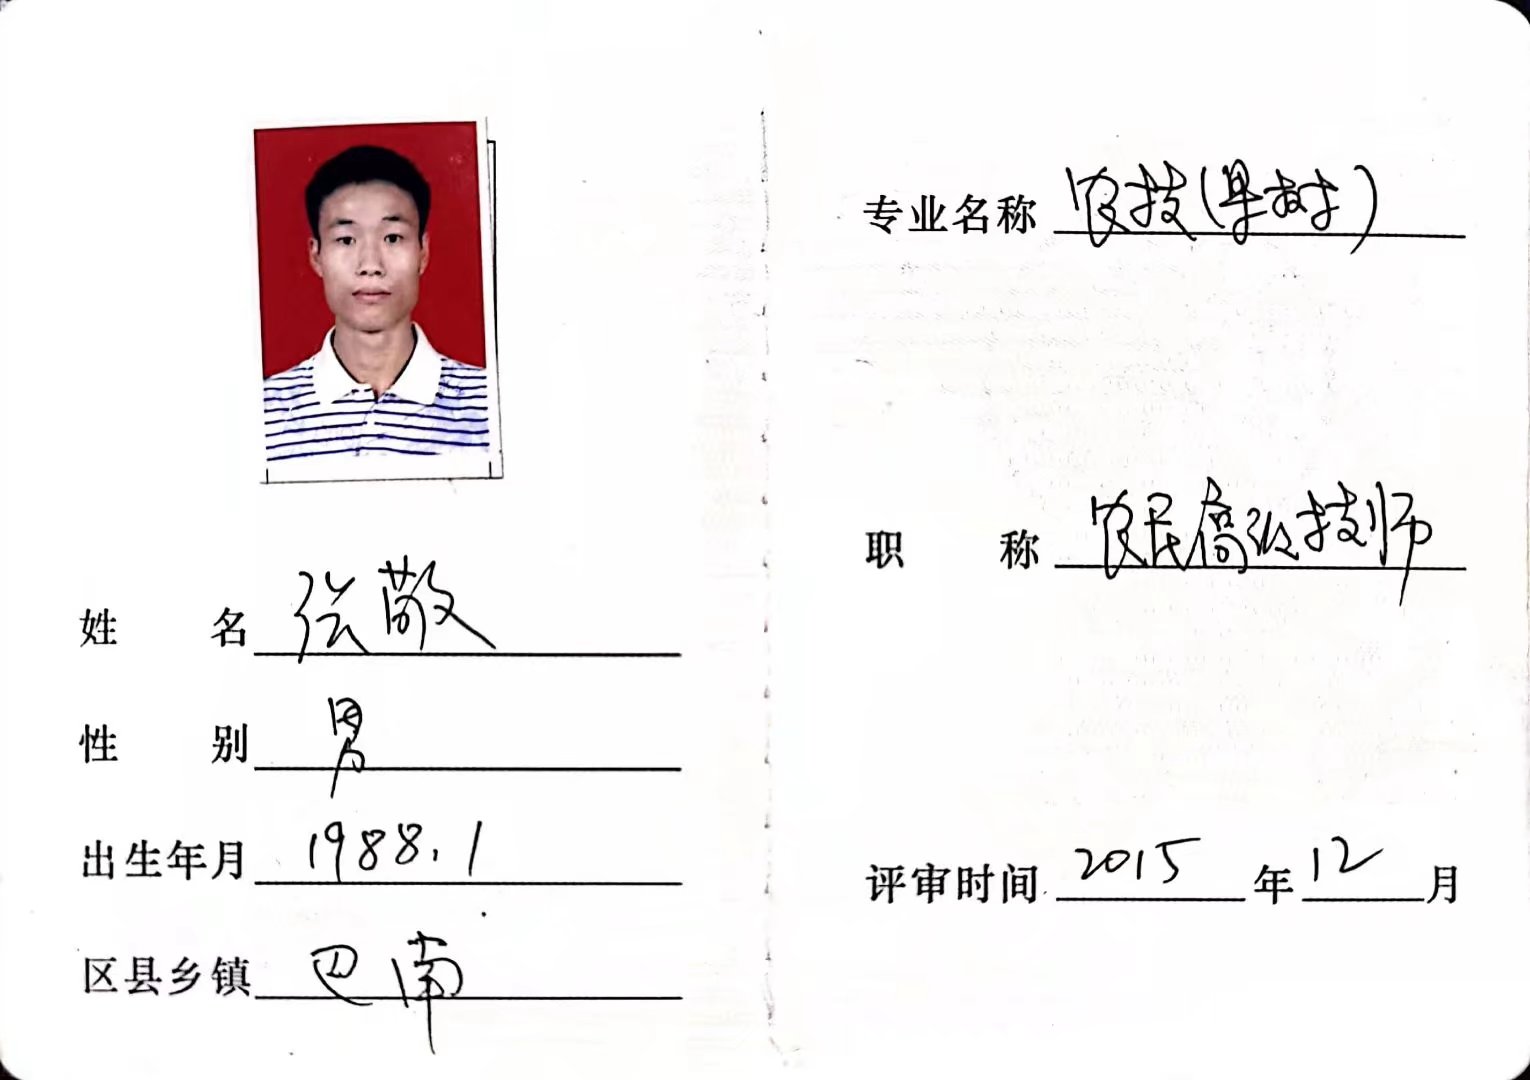 姓名 张敬
性别 男
出生年月 1988.1
区县乡镇 巴南
专业名称 农技(果树)
职称 农民高级技师
评审时间 2015 年 12 月